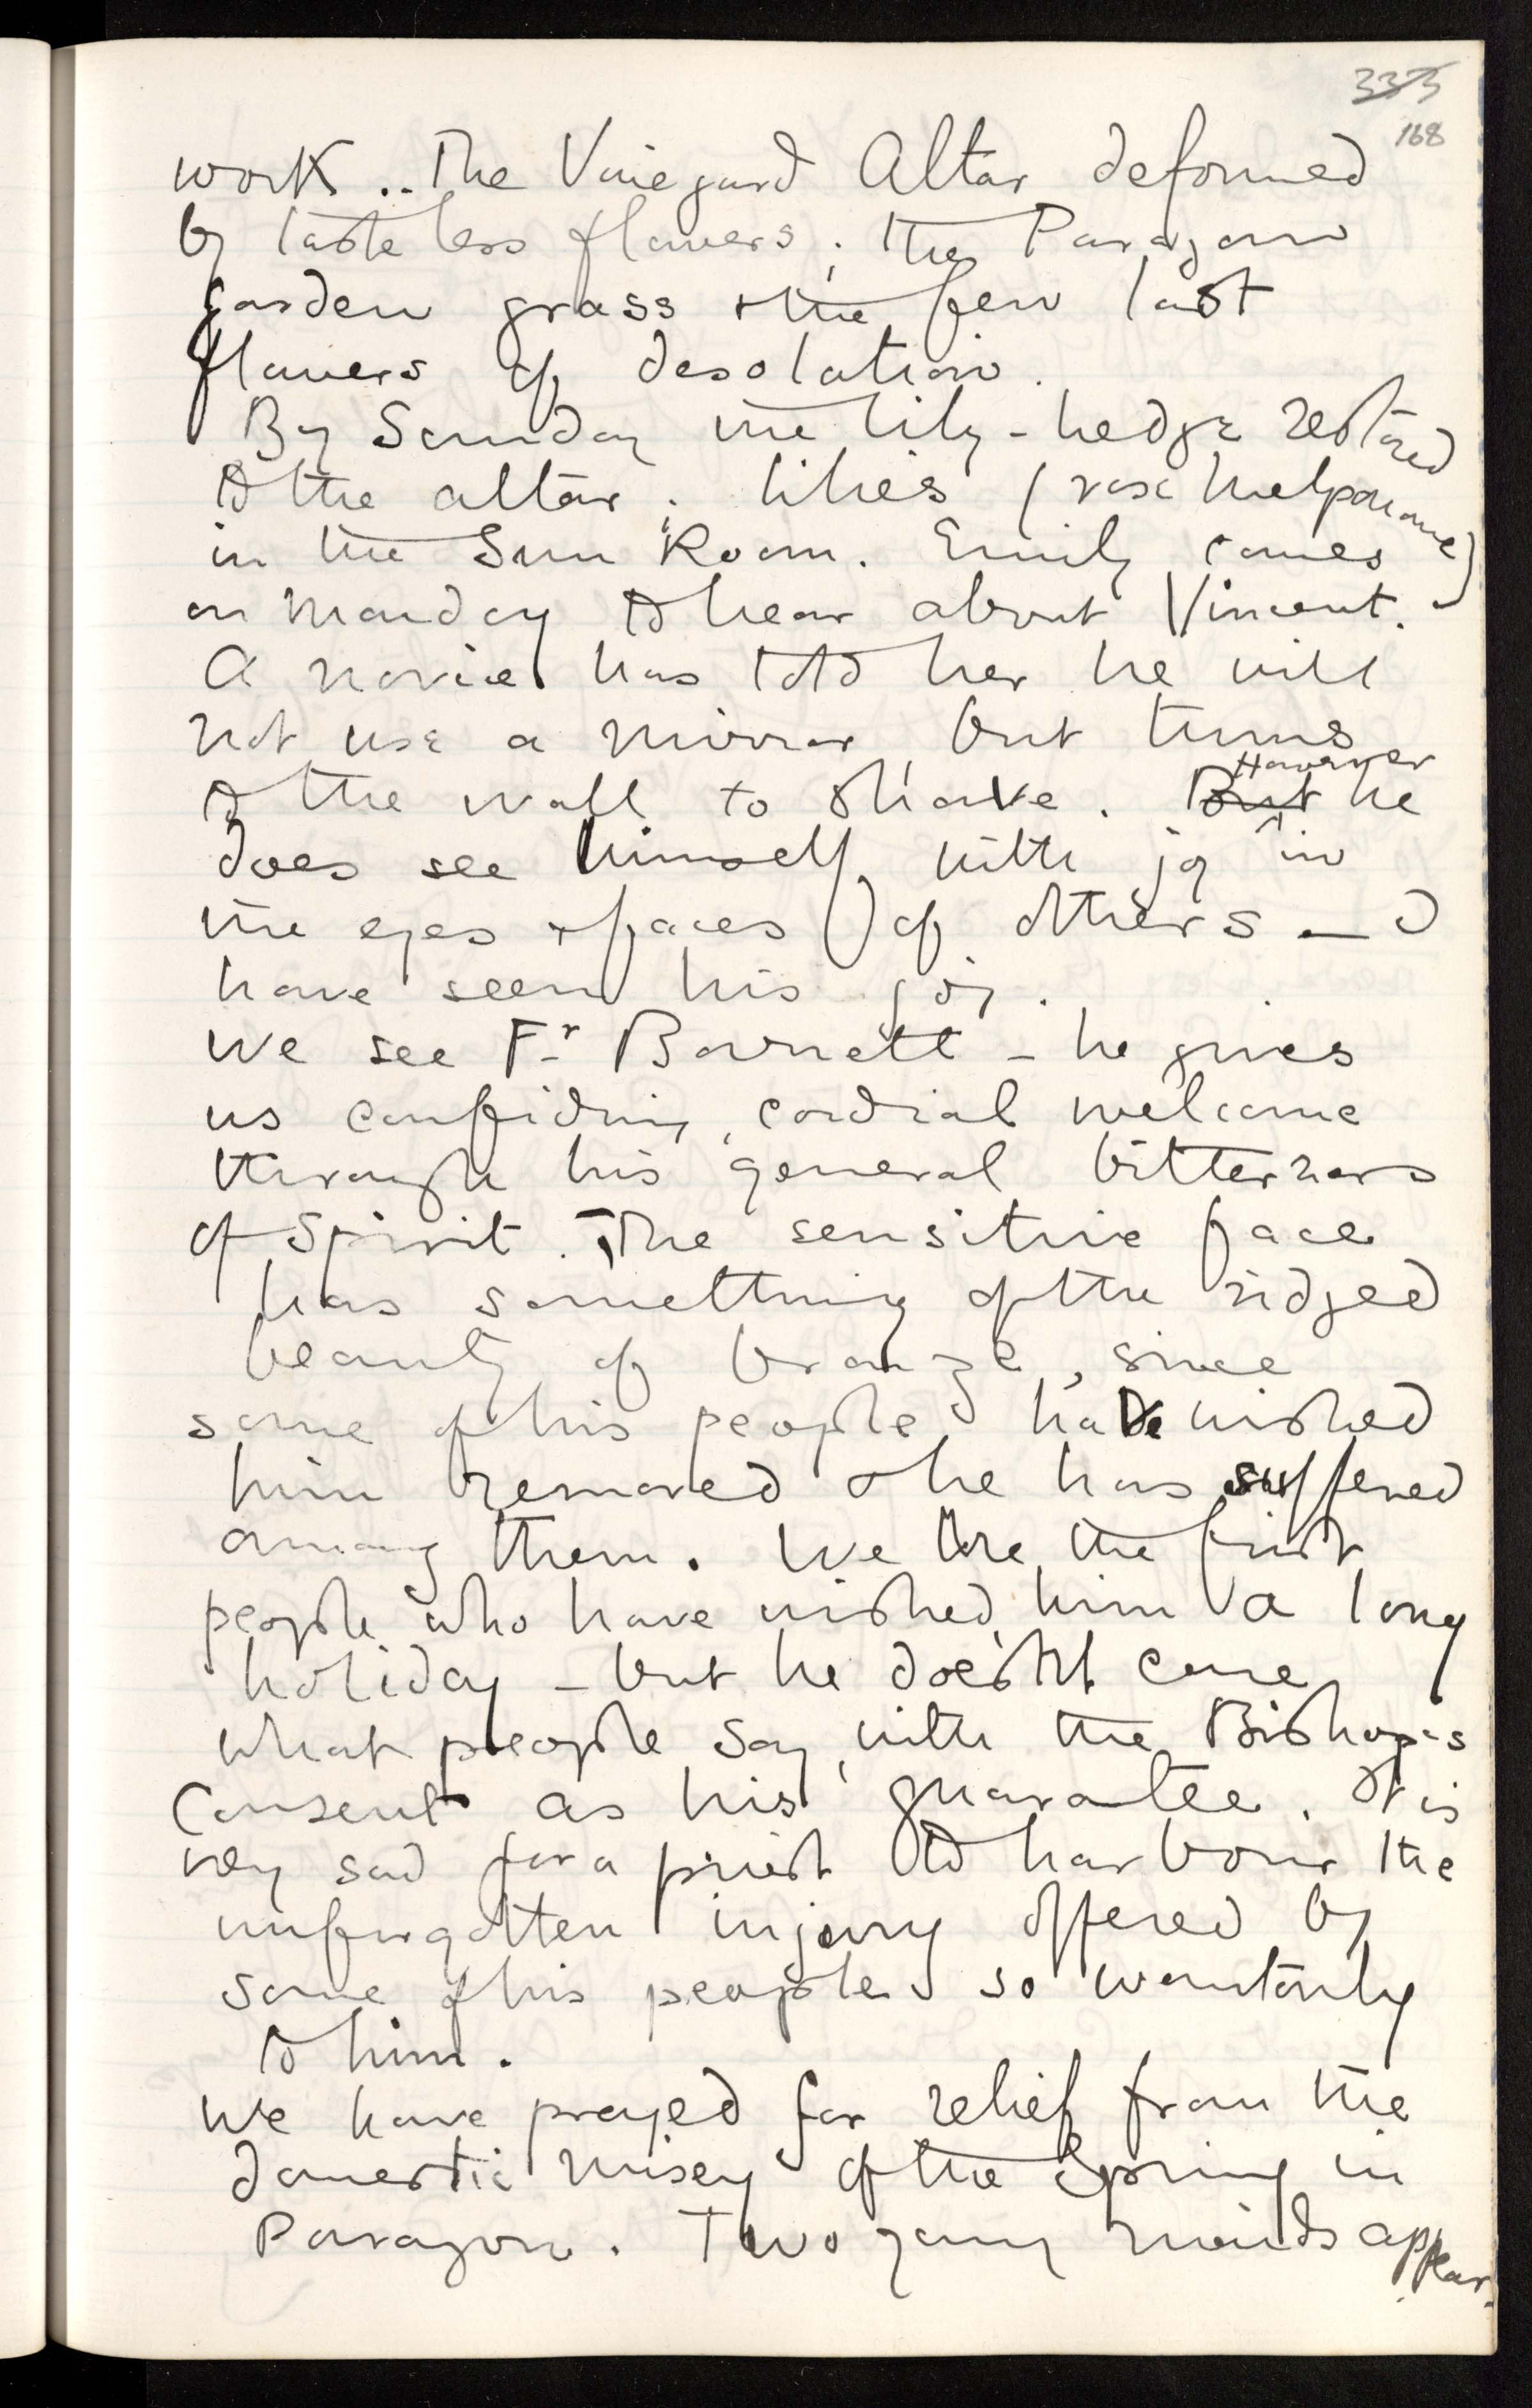 333
168
work .. The Vineyard Altar deformed
by tasteless flowers; the Paragon
garden grass & the few last
flowers of desolation.
By Sunday the lily-hedge restored
to the altar; lilies (rose Melpomone)
in the Sun Room. Emily comes
on Monday to hear about Vincent.
A novice has told her he will
not use a mirror, but turns
to the wall to shave. But However he
does see himself, with joy in
the eyes & faces of others — I
have seen his joy.
We see Fr Barnett — he gives
us confiding, cordial welcome
through his general bitterness
of Spirit. The sensitive face
has something of the ridged
beauty of bronze, since
some of his people have wished
him removed & he has suffered
among them. We are the first
people who have wished him a long
holiday — but he doesn't care
what people say, with the Bishop's
Consent as his guarantee. It is
very sad for a priest to harbour the
unforgotten injury offered by
some of his people so wantonly
to him.
We have prayed for relief from the
domestic misery of the Spring in
Paragon. Two young maids appear.